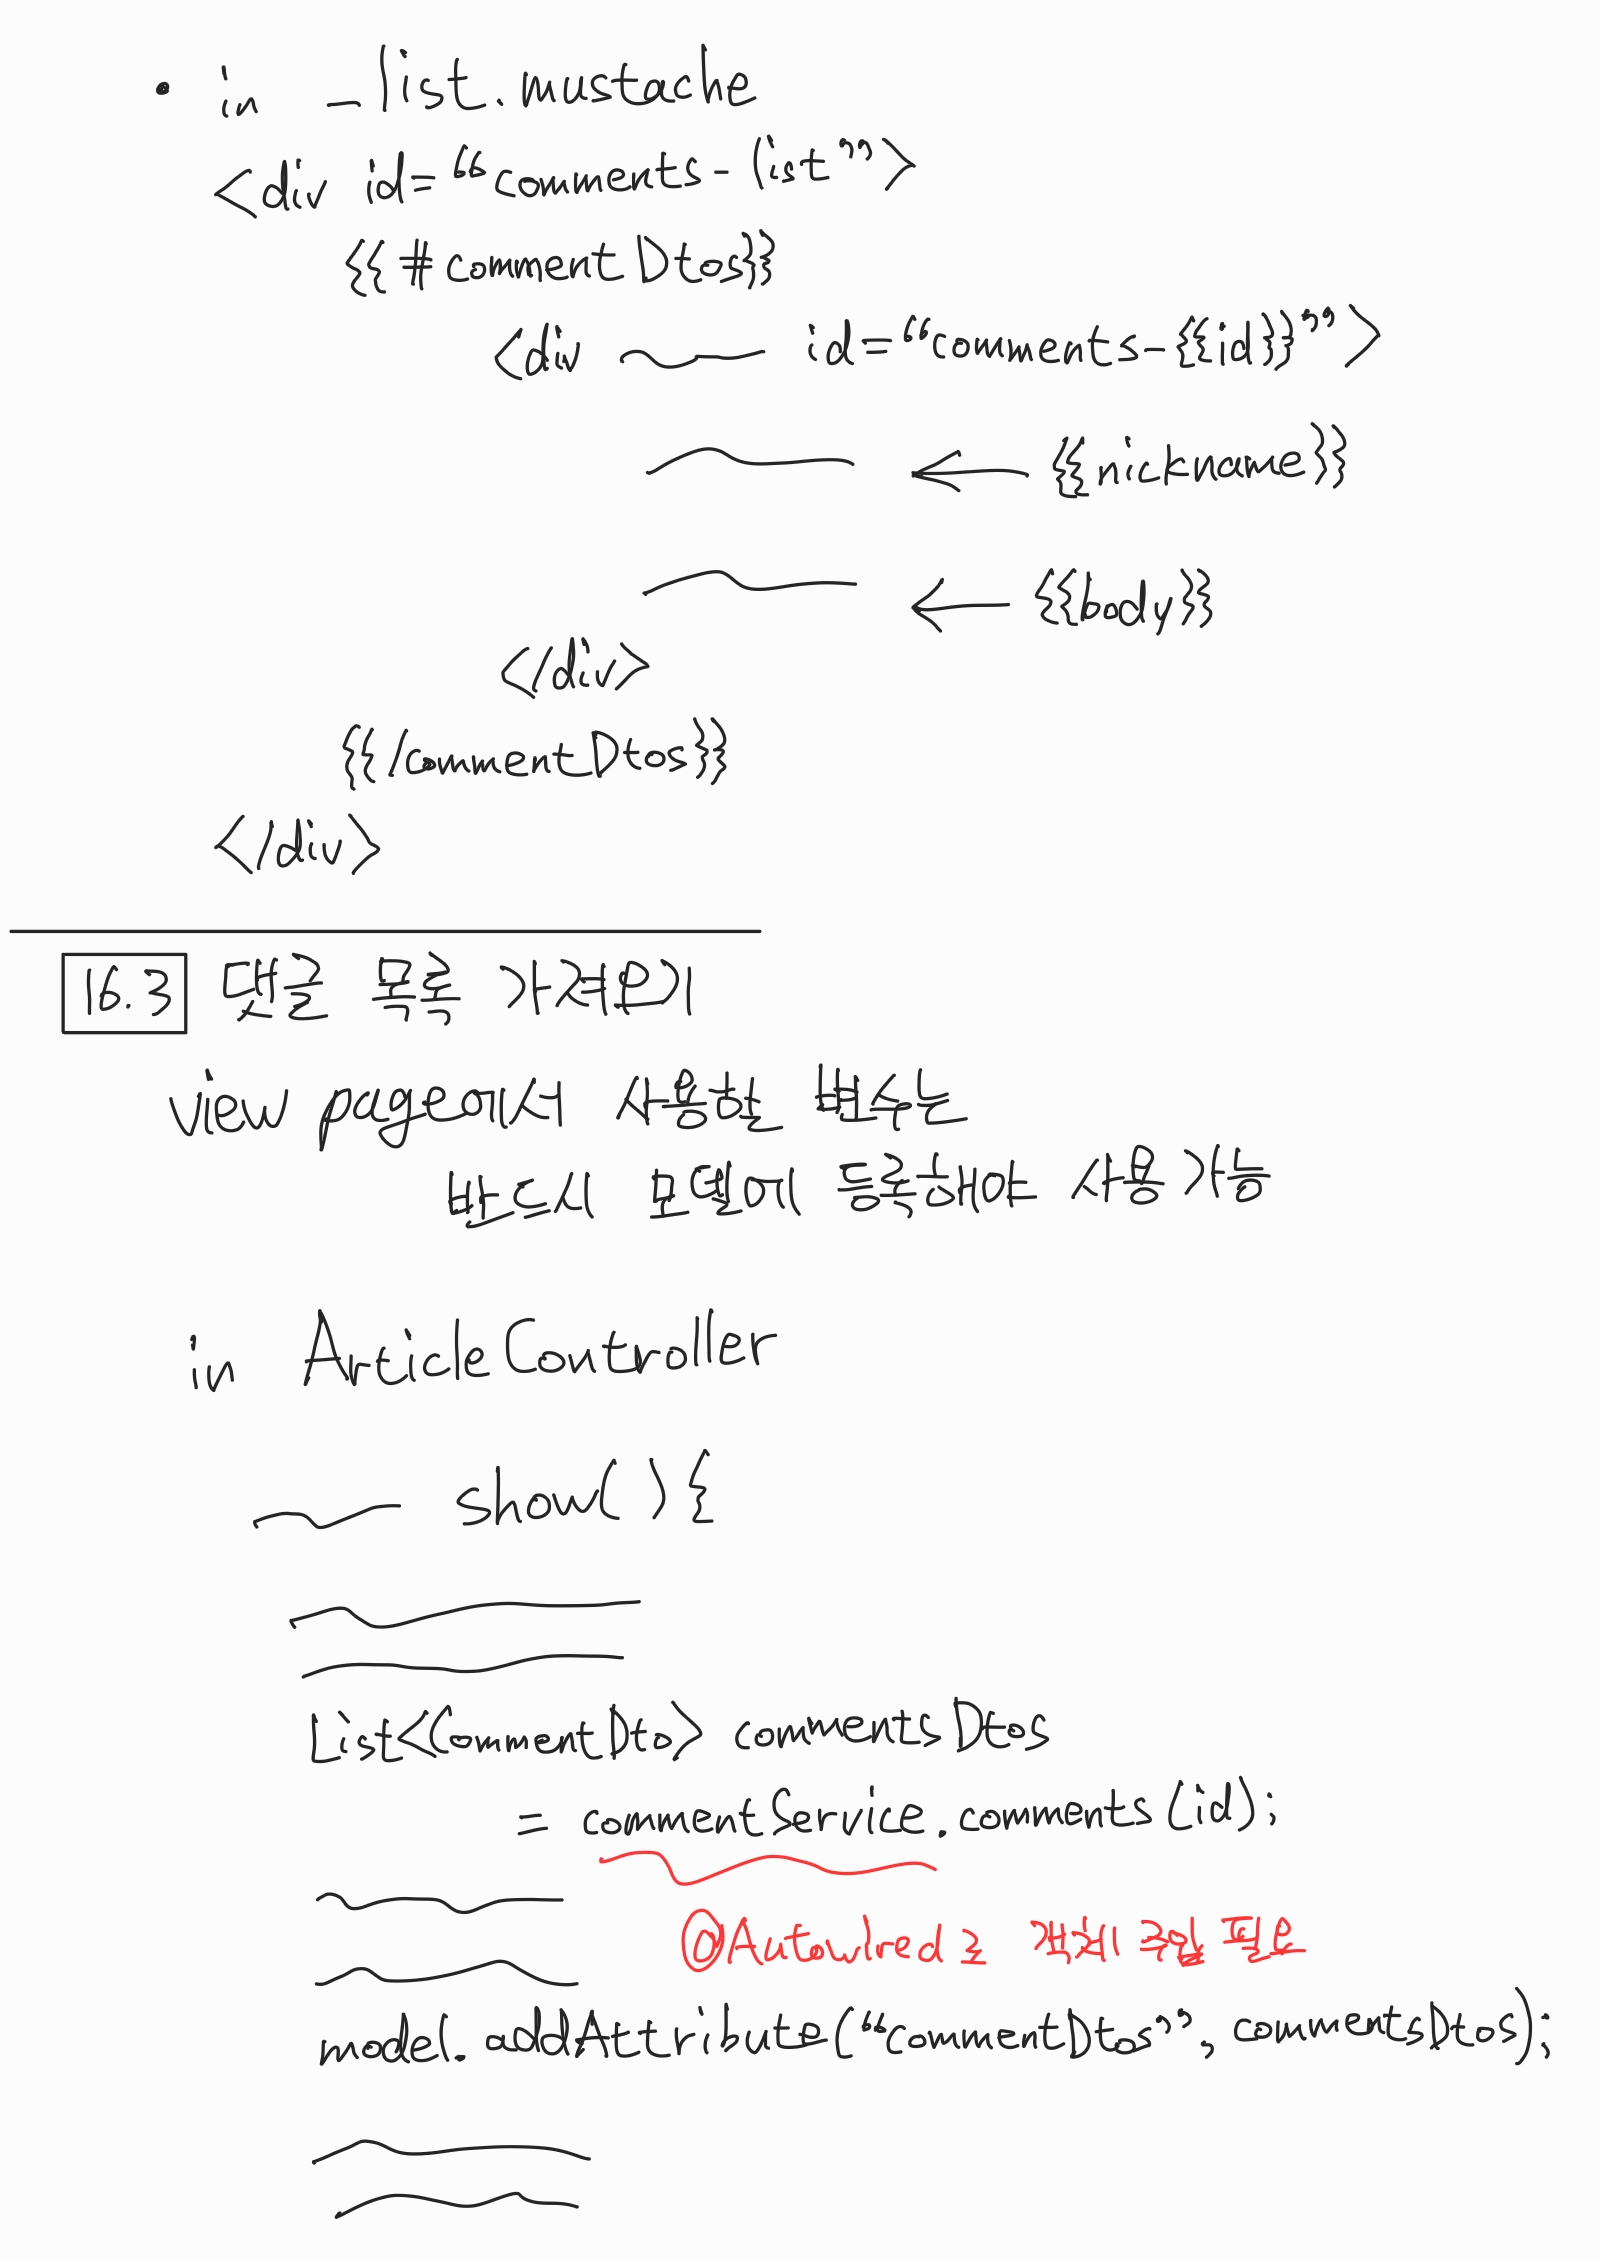 • in _list.mustache
<div id="comments-list">
{{#commentDtos}}
<div id="comments-{{id}}">
← {{nickname}}
← {{body}}
</div>
{{/commentDtos}}
</div>
16.3 댓글 목록 가져오기
view page에서 사용한 변수는
반드시 모델에 등록해야 사용 가능
in ArticleController
show( ) {
List<CommentDto> commentsDtos
= commentService.comments(id);
@Autowired로 객체 주입 필요
model.addAttribute("commentDtos", commentsDtos);